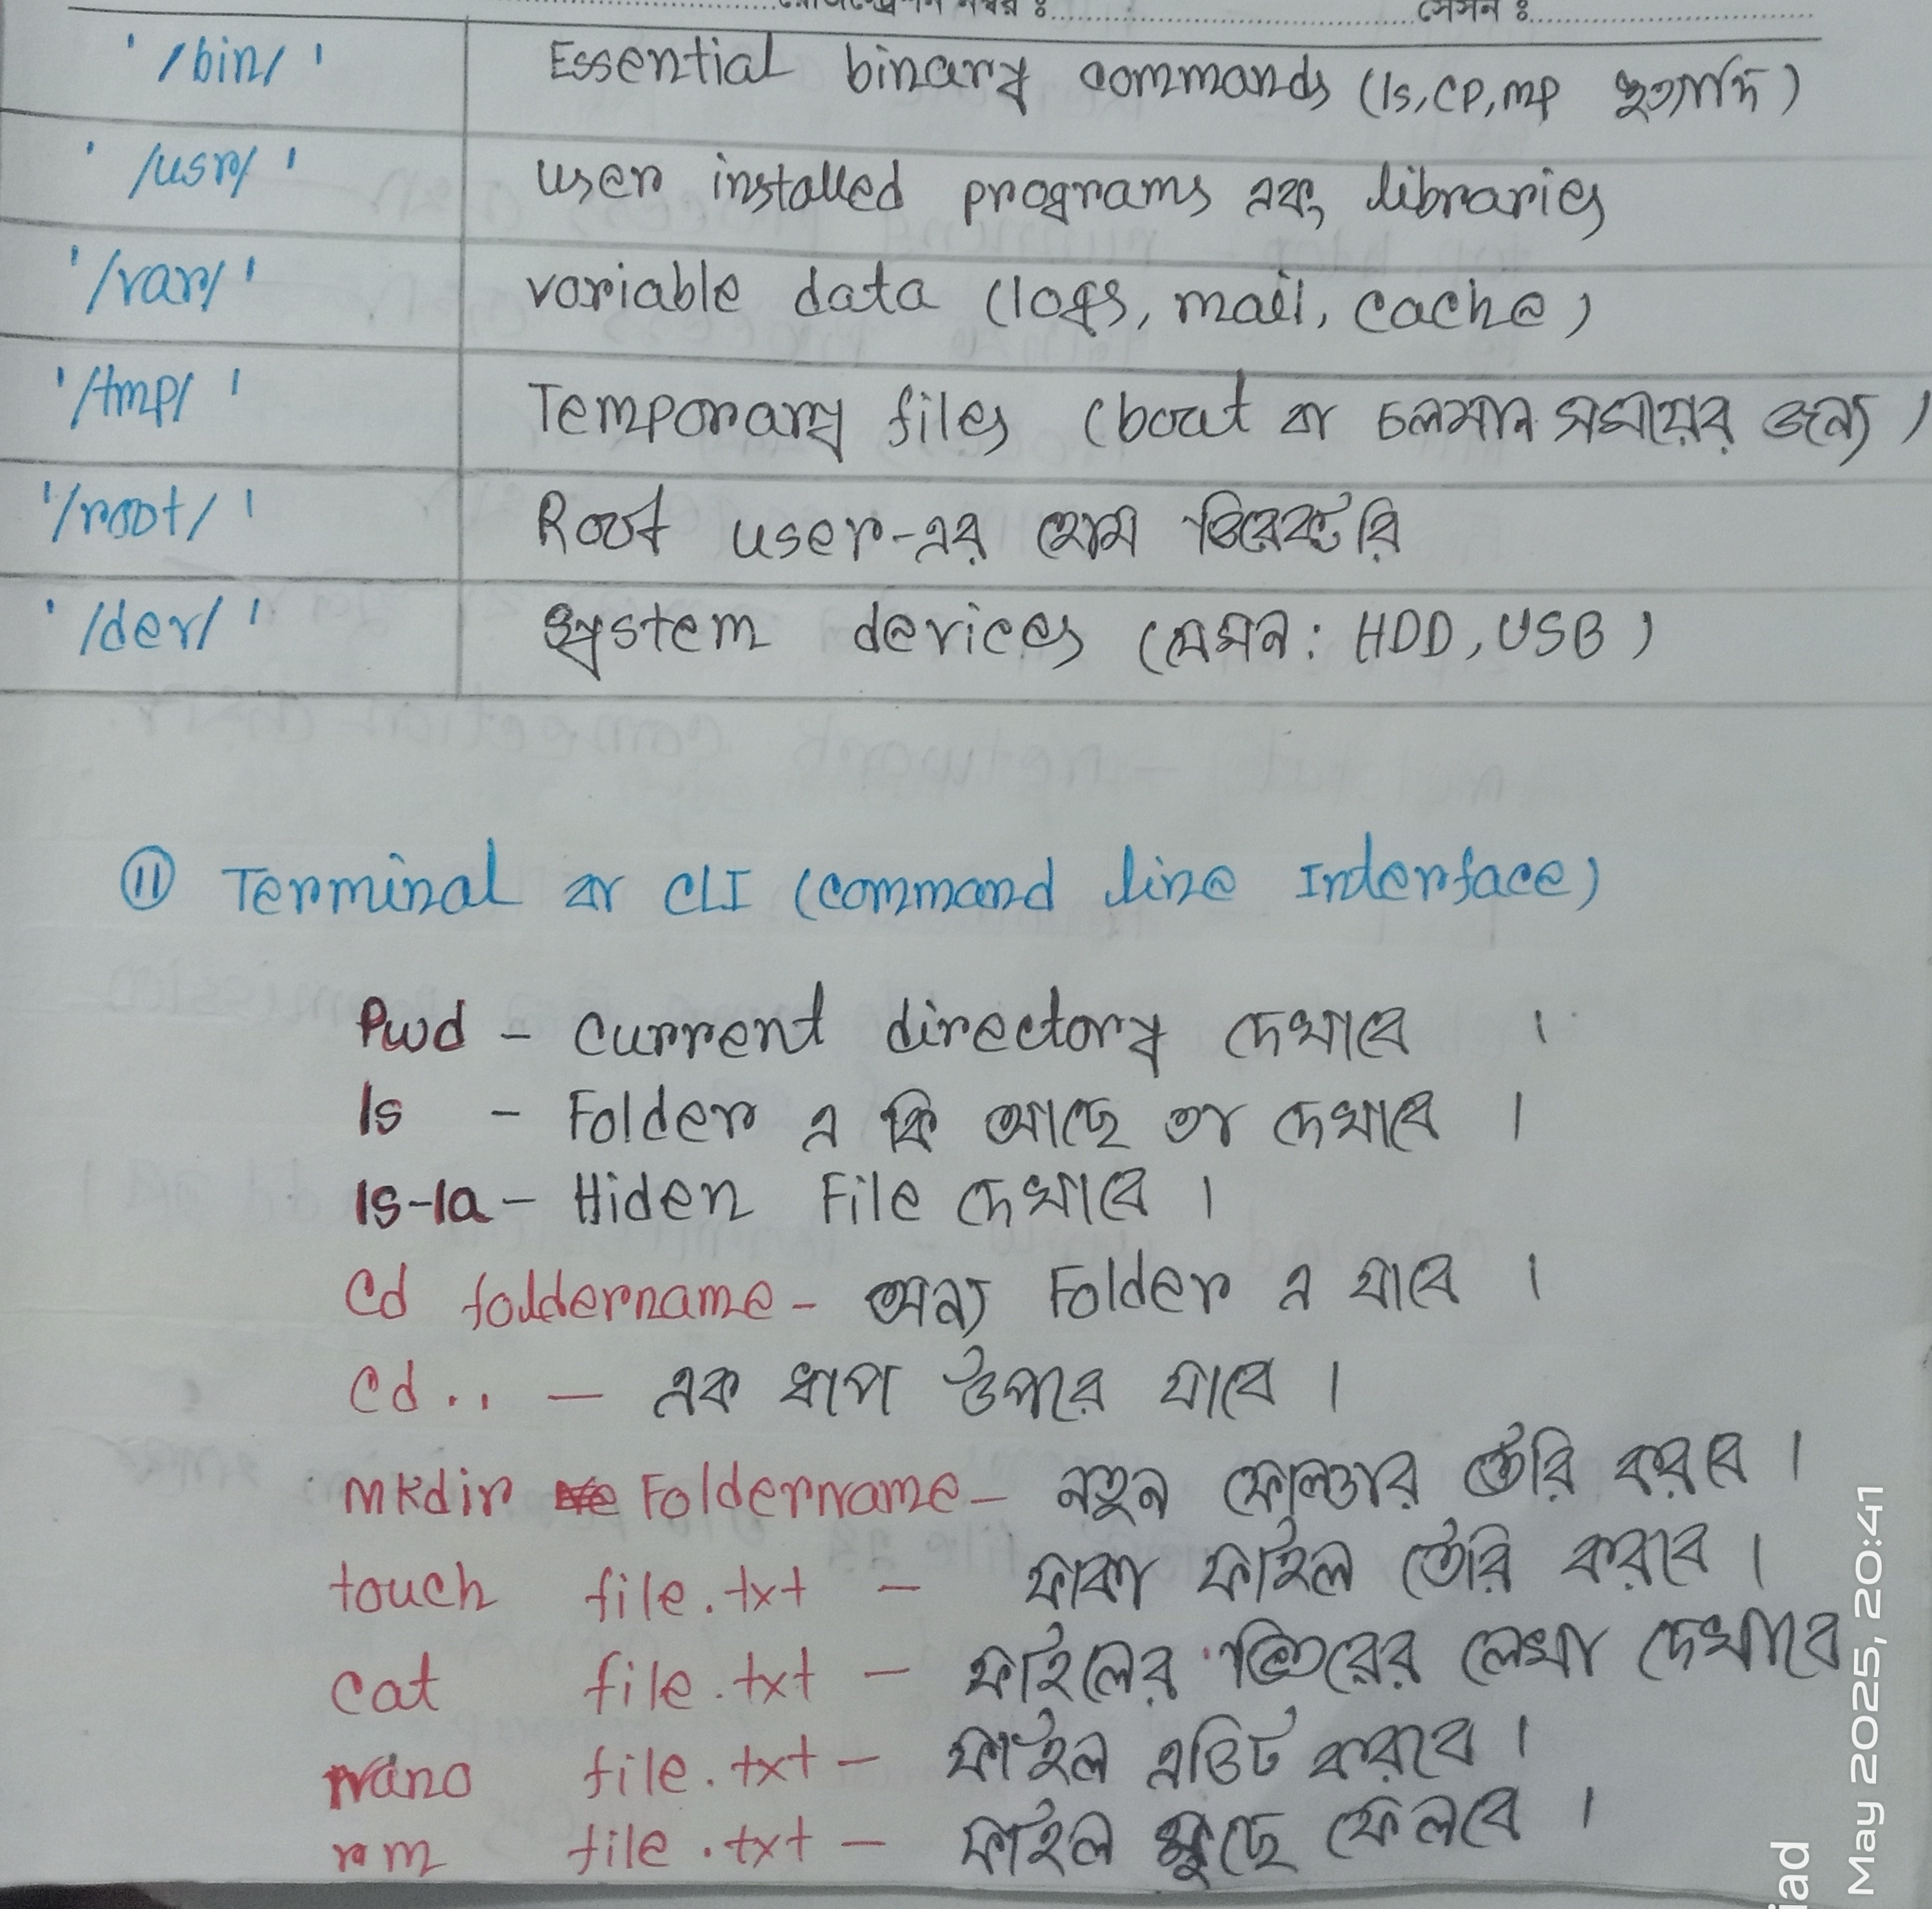 রেজিস্ট্রেশন নম্বর ঃ.................... সেসন ঃ....................
'/bin/' Essential binary commands (ls, cp, mp ইত্যাদি)
'/usr/' user installed programs এবং libraries
'/var/' variable data (logs, mail, cache)
'/tmp/' Temporary files (boot বা চলমান সময়ের জন্য)
'/root/' Root user-এর হোম ডিরেক্টরি
'/dev/' System devices (যেমন: HDD, USB)
⑪ Terminal বা CLI (command line Interface)
Pwd - current directory দেখাবে ।
ls - Folder এ কি আছে তা দেখাবে ।
ls-la - Hiden File দেখাবে ।
cd foldername - অন্য Folder এ যাবে ।
cd.. - এক ধাপ উপরে যাবে ।
mkdir Foldername - নতুন ফোল্ডার তৈরি করবে ।
touch file.txt - ফাকা ফাইল তৈরি করবে ।
cat file.txt - ফাইলের ভিতরের লেখা দেখাবে
nano file.txt - ফাইল এডিট করবে ।
rm file.txt - ফাইল মুছে ফেলবে ।
iad
May 2025, 20:41